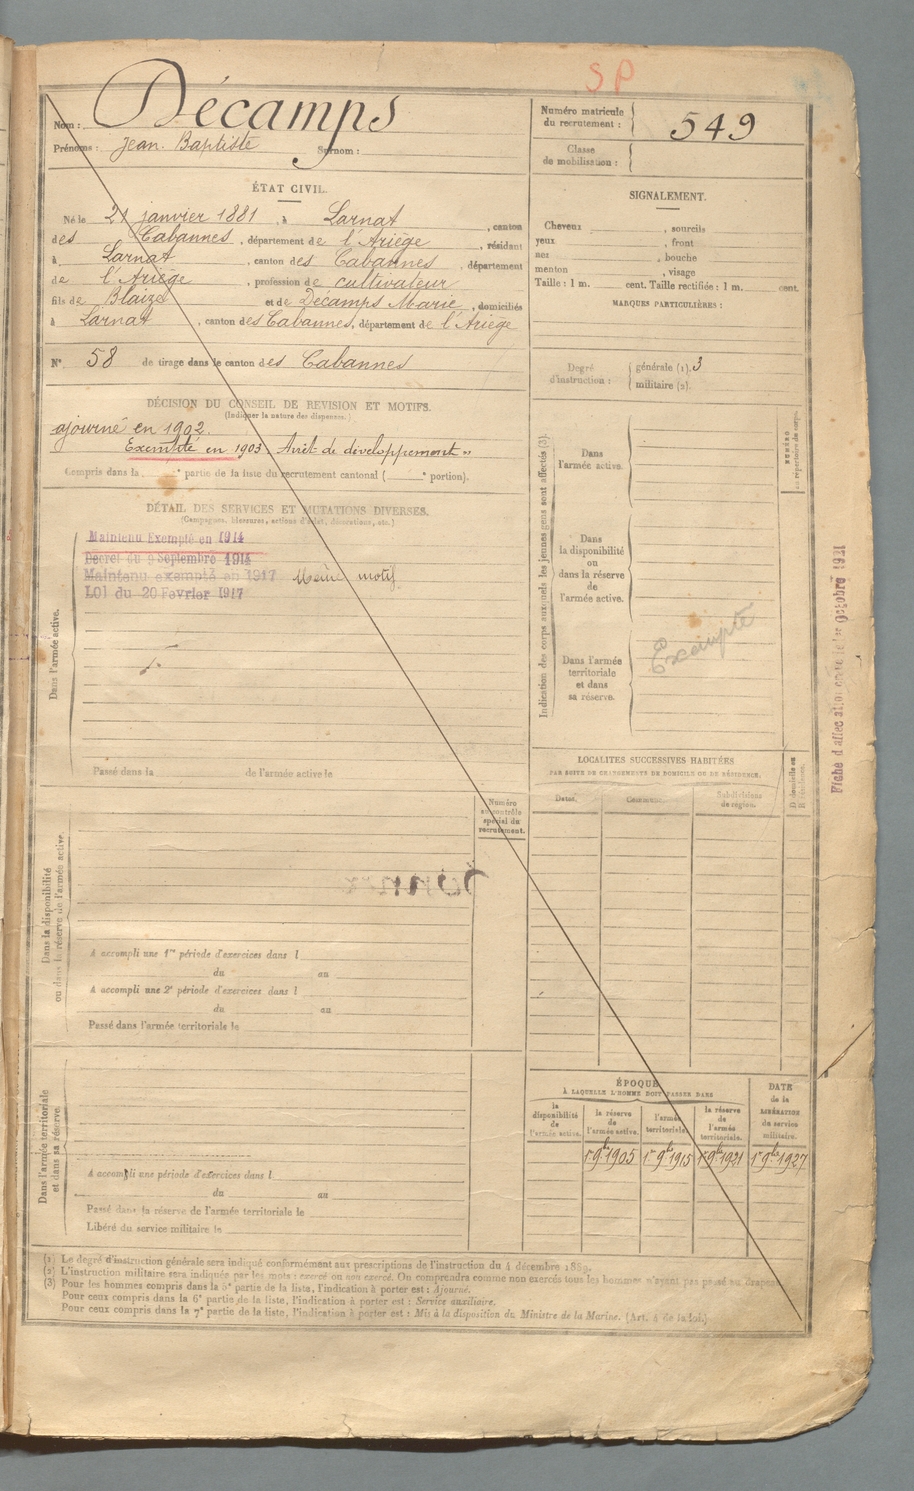 SP
Nom : Décamps
Prénoms : Jean Baptiste Surnom :
Numéro matricule du recrutement : 549
Classe de mobilisation :
ÉTAT CIVIL.
Né le 21 janvier 1881, à Larnat, canton
des Cabannes, département de l'Ariège, résidant
à Larnat, canton des Cabannes, département
de l'Ariège, profession de cultivateur
fils de Blaize et de Décamps Marie, domiciliés
à Larnat, canton des Cabannes, département de l'Ariège
N° 58 de tirage dans le canton des Cabannes
SIGNALEMENT.
Cheveux , sourcils
yeux , front
nez , bouche
menton , visage
Taille : 1 m. cent. Taille rectifiée : 1 m. cent.
MARQUES PARTICULIÈRES :
Degré d'instruction :
générale (1). 3
militaire (2).
DÉCISION DU CONSEIL DE REVISION ET MOTIFS.
(Indiquer la nature des dispenses.)
ajourné en 1902.
Exempté en 1903. Arrêt de développement "
Compris dans la ° partie de la liste du recrutement cantonal ( ° portion).
DÉTAIL DES SERVICES ET MUTATIONS DIVERSES.
(Campagnes, blessures, actions d'éclat, décorations, etc.)
Maintenu Exempté en 1914
Décret du 9 Septembre 1914
Maintenu exempté en 1917 Même motif
Loi du 20 Février 1917
Dans l'armée active.
Passé dans la de l'armée active le
Indication des corps auxquels les jeunes gens sont affectés (3).
Dans
l'armée active.
Dans
la disponibilité
ou
dans la réserve
de
l'armée active.
Dans l'armée
territoriale
et dans
sa réserve.
Exempté
NUMÉRO
au répertoire du corps.
LOCALITÉS SUCCESSIVES HABITÉES
PAR SUITE DE CHANGEMENTS DE DOMICILE OU DE RÉSIDENCE.
Dates.
Communes.
Subdivisions
de région.
D. domicile ou
R. résidence.
Numéro
au contrôle
spécial du
recrutement.
Dans la disponibilité
ou dans la réserve de l'armée active.
A accompli une 1re période d'exercices dans l
du au
A accompli une 2e période d'exercices dans l
du au
Passé dans l'armée territoriale le
Dans l'armée territoriale
et dans sa réserve.
A accompli une période d'exercices dans l
du au
Passé dans la réserve de l'armée territoriale le
Libéré du service militaire le
ÉPOQUE
À LAQUELLE L'HOMME DOIT PASSER DANS
la disponibilité de l'armée active.
la réserve de l'armée active.
l'armée territoriale.
la réserve de l'armée territoriale.
DATE de la LIBÉRATION du service militaire.
1er 9bre 1905 1er 9bre 1915 1er 9bre 1921 1er 9bre 1927
(1) Le degré d'instruction générale sera indiqué conformément aux prescriptions de l'instruction du 4 décembre 1889.
(2) L'instruction militaire sera indiquée par les mots : exercé ou non exercé. On comprendra comme non exercés tous les hommes n'ayant pas passé au drapeau.
(3) Pour les hommes compris dans la 5e partie de la liste, l'indication à porter est : Ajourné.
Pour ceux compris dans la 6e partie de la liste, l'indication à porter est : Service auxiliaire.
Pour ceux compris dans la 7e partie de la liste, l'indication à porter est : Mis à la disposition du Ministre de la Marine. (Art. 4 de la loi.)